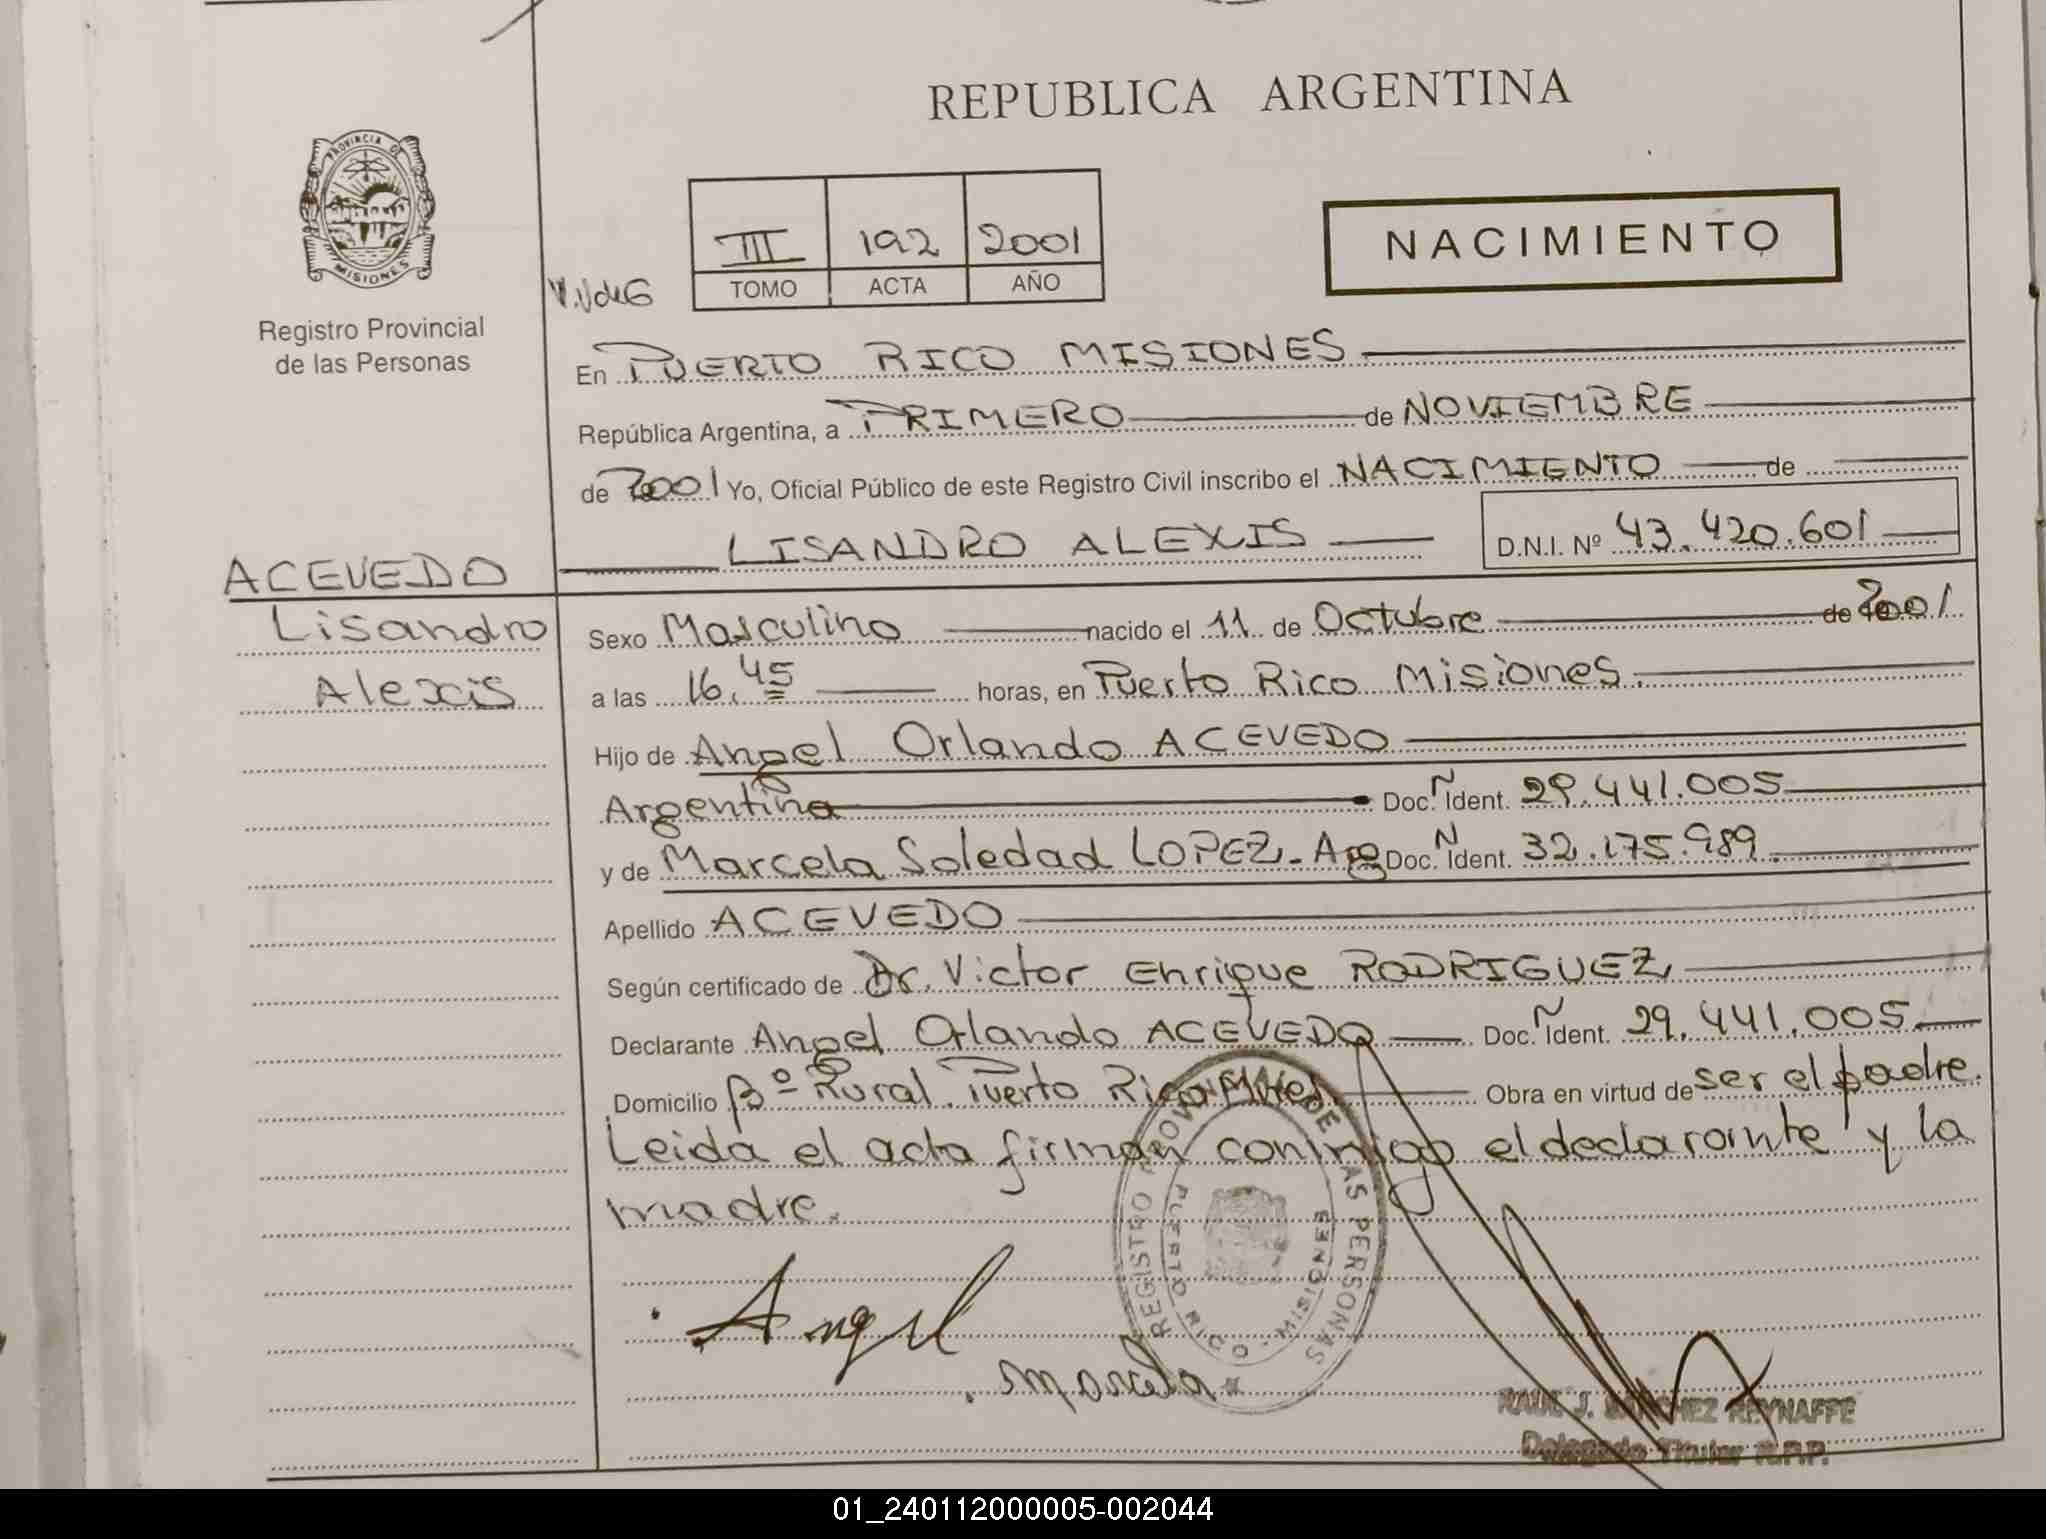 REPUBLICA ARGENTINA
PROVINCIA DE
MISIONES
Registro Provincial
de las Personas
III 192 2001
TOMO ACTA AÑO
NACIMIENTO
En PUERTO RICO MISIONES
República Argentina, a PRIMERO de NOVIEMBRE
de 2001 Yo, Oficial Público de este Registro Civil inscribo el NACIMIENTO de
LISANDRO ALEXIS D.N.I. Nº 43.420.601
ACEVEDO
Lisandro
Alexis
Sexo Masculino nacido el 11 de Octubre de 2001
a las 16.45 horas, en Puerto Rico Misiones.
Hijo de Angel Orlando ACEVEDO
Argentina Doc. Ñ Ident. 29.441.005
y de Marcela Soledad LOPEZ - Arg Doc. N Ident. 32.175.989
Apellido ACEVEDO
Según certificado de Dr. Victor Enrique RODRIGUEZ
Declarante Angel Orlando ACEVEDO Doc. Ñ Ident. 29.441.005
Domicilio Bº Rural Puerto Rico Mnes Obra en virtud de ser el padre.
Leida el acta firman conmigo el declarante y la
madre.
REGISTRO PROVINCIAL DE LAS PERSONAS
PUERTO RICO - MISIONES
Angel
Marcela
RAUL J. SANCHEZ REYNAFFE
Delegado Titular R.P.P.
01_240112000005-002044